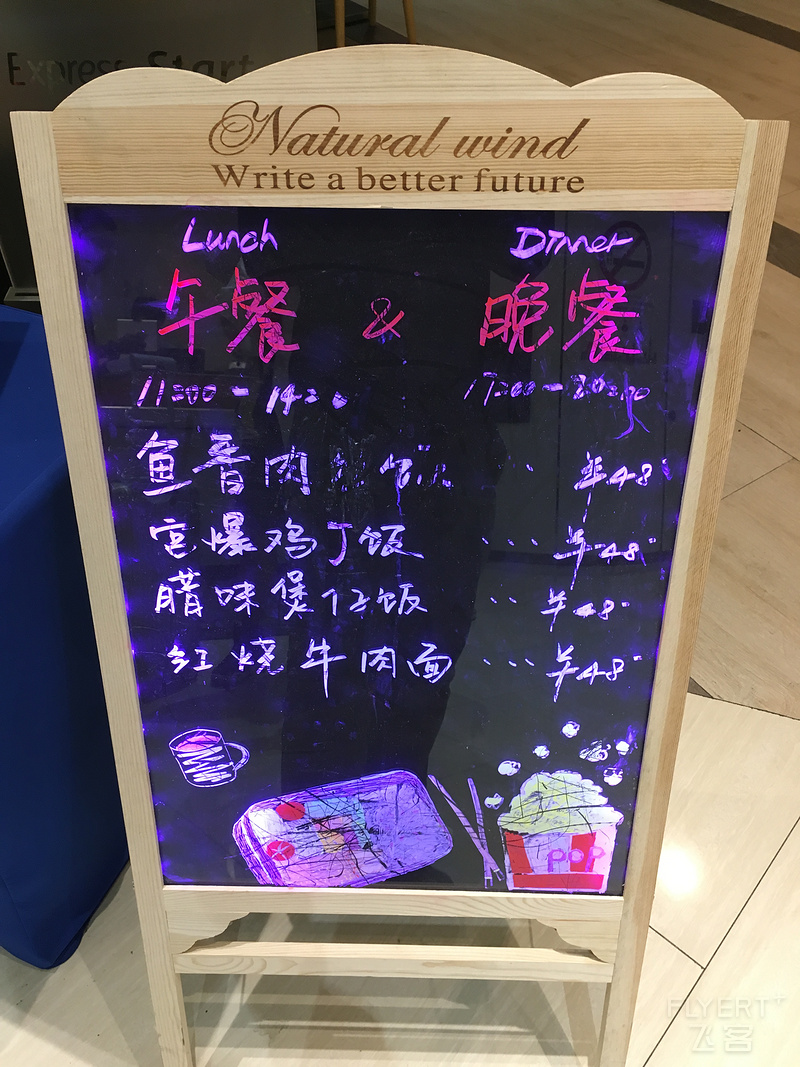 Express Start
Natural wind
Write a better future
Lunch Dinner
午餐 & 晚餐
11:00-14:
17:00-
鱼香肉 饭 ... ¥48
宫爆鸡丁饭 ... ¥48
腊味煲仔饭 ... ¥48
红烧牛肉面 ... ¥48
POP
FLYERT+
飞客